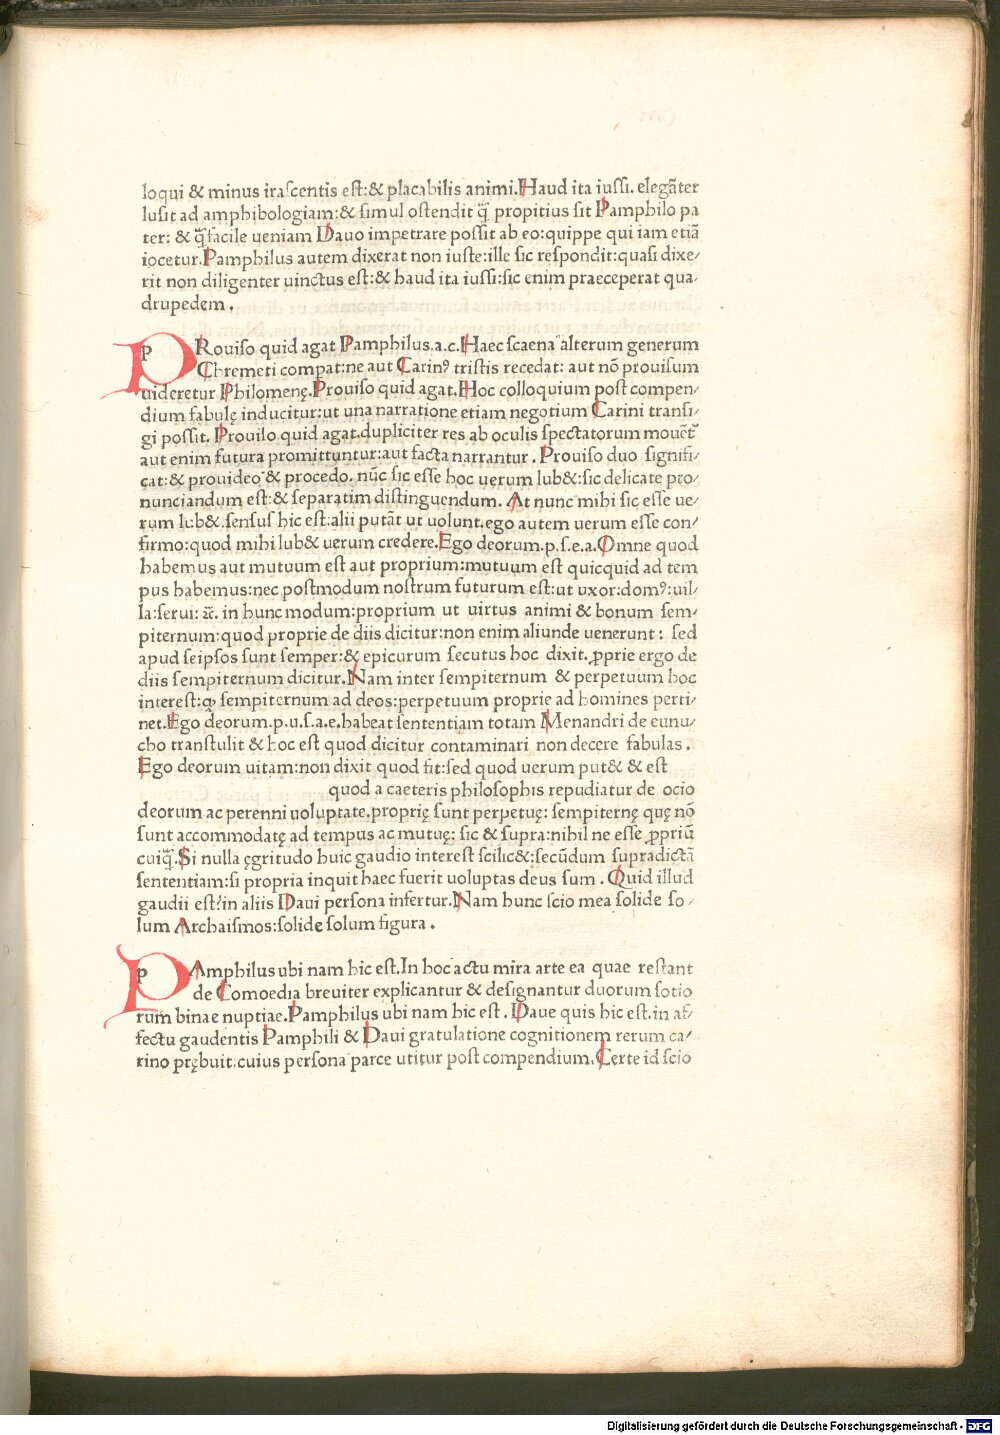 loqui & minus iraſcentis eſt:& placabilis animi.Haud ita iuſſi. elegāter
luſit ad amphibologiam:& ſimul oſtendit q̄ propitius ſit Pamphilo pa
ter: & q̄ facile ueniam Dauo impetrare poſſit ab eo:quippe qui iam etiā
iocetur.Pamphilus autem dixerat non iuſte:ille ſic reſpondit:quaſi dixe/
rit non diligenter uinctus eſt:& haud ita iuſſi:ſic enim praeceperat qua/
drupedem .
p Rouiſo quid agat Pamphilus.a.c.Haec ſcaena alterum generum
Chremeti compat:ne aut Carinꝰ triſtis recedat: aut nō prouiſum
uideretur Philomenę.Prouiſo quid agat.Hoc colloquium poſt compen/
dium fabulę inducitur:ut una narratione etiam negotium Carini tranſi/
gi poſſit. Prouiſo quid agat.dupliciter res ab oculis ſpectatorum mouēt᷑
aut enim futura promittuntur:aut facta narrantur . Prouiſo duo ſignifi/
cat:& prouideo & procedo. nūc ſic eſſe hoc uerum lub&:ſic delicate pro/
nunciandum eſt:& ſeparatim diſtinguendum. At nunc mihi ſic eſſe ue/
rum lub&.ſenſus hic eſt:alii putāt ut uolunt.ego autem uerum eſſe con/
firmo:quod mihi lub& uerum credere.Ego deorum.p.ſ.e.a.Omne quod
habemus aut mutuum eſt aut proprium:mutuum eſt quicquid ad tem
pus habemus:nec poſtmodum noſtrum futurum eſt:ut uxor:domꝰ:uil/
la:ſerui: ⁊c̄. in hunc modum:proprium ut uirtus animi & bonum ſem/
piternum:quod proprie de diis dicitur:non enim aliunde uenerunt : ſed
apud ſeipſos ſunt ſemper:& epicurum ſecutus hoc dixit.ꝓprie ergo de
diis ſempiternum dicitur.Nam inter ſempiternum & perpetuum hoc
intereſt:ꝙ ſempiternum ad deos:perpetuum proprie ad homines perti/
net.Ego deorum.p.u.ſ.a.e.habeat ſententiam totam Menandri de eunu/
cho tranſtulit & hoc eſt quod dicitur contaminari non decere fabulas .
Ego deorum uitam:non dixit quod fit:ſed quod uerum put& & eſt
quod a caeteris philoſophis repudiatur de ocio
deorum ac perenni uoluptate.proprię ſunt perpetuę: ſempiternę quę nō
ſunt accommodatę ad tempus ac mutuę: ſic & ſupra:nihil ne eſſe ꝓpriū
cuiq̄.Si nulla ęgritudo huic gaudio intereſt ſcilic&:ſecūdum ſupradictā
ſententiam:ſi propria inquit haec fuerit uoluptas deus ſum . Quid illud
gaudii eſt?in aliis Daui perſona infertur.Nam hunc ſcio mea ſolide ſo /
lum Archaiſmos:ſolide ſolum figura .
p Amphilus ubi nam hic eſt.In hoc actu mira arte ea quae reſtant
de Comoedia breuiter explicantur & deſignantur duorum ſotio
rum binae nuptiae.Pamphilus ubi nam hic eſt . Daue quis hic eſt.in af/
fectu gaudentis Pamphili & Daui gratulatione cognitionem rerum ca/
rino prębuit:cuius perſona parce utitur poſt compendium. Certe id ſcio
Digitalisierung gefördert durch die Deutsche Forschungsgemeinschaft - DFG